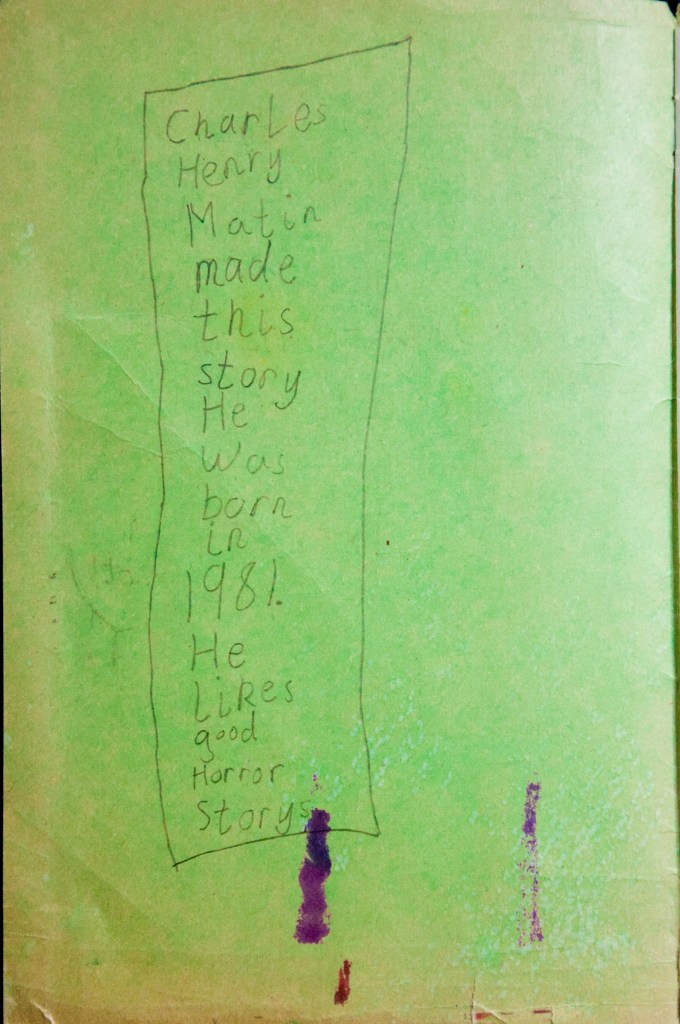 Charles
Henry
Matin
made
this
story
He
was
born
in
1981.
He
Likes
good
Horror
Storys